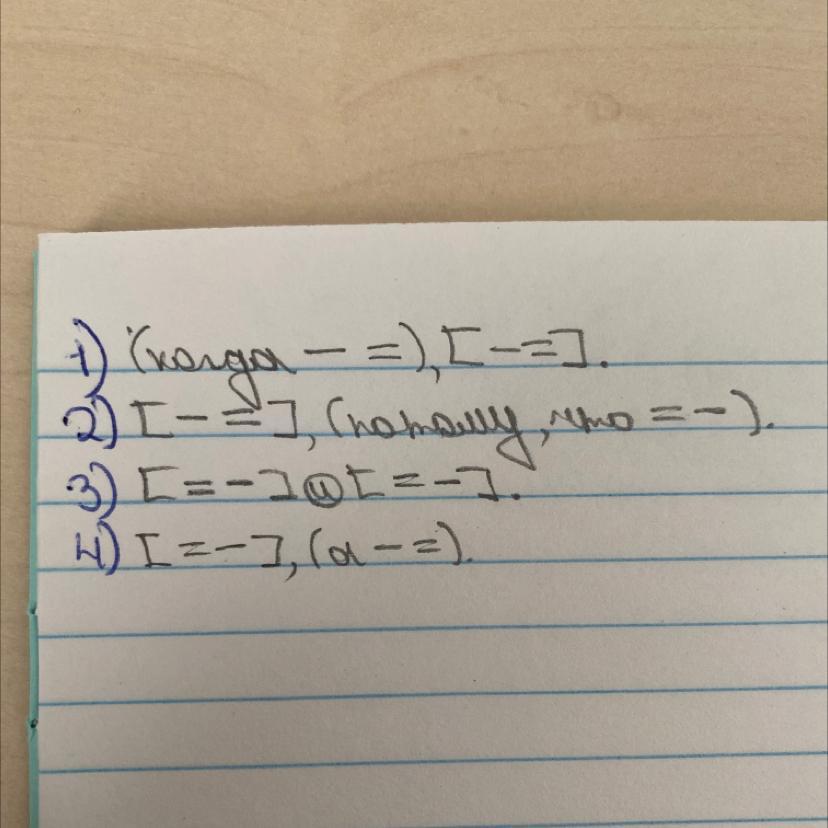 1) (когда – =), [ – = ].
2) [ – = ], (потому, что = – ).
3) [ = – ] и [ = – ].
4) [ = – ], (а – =).